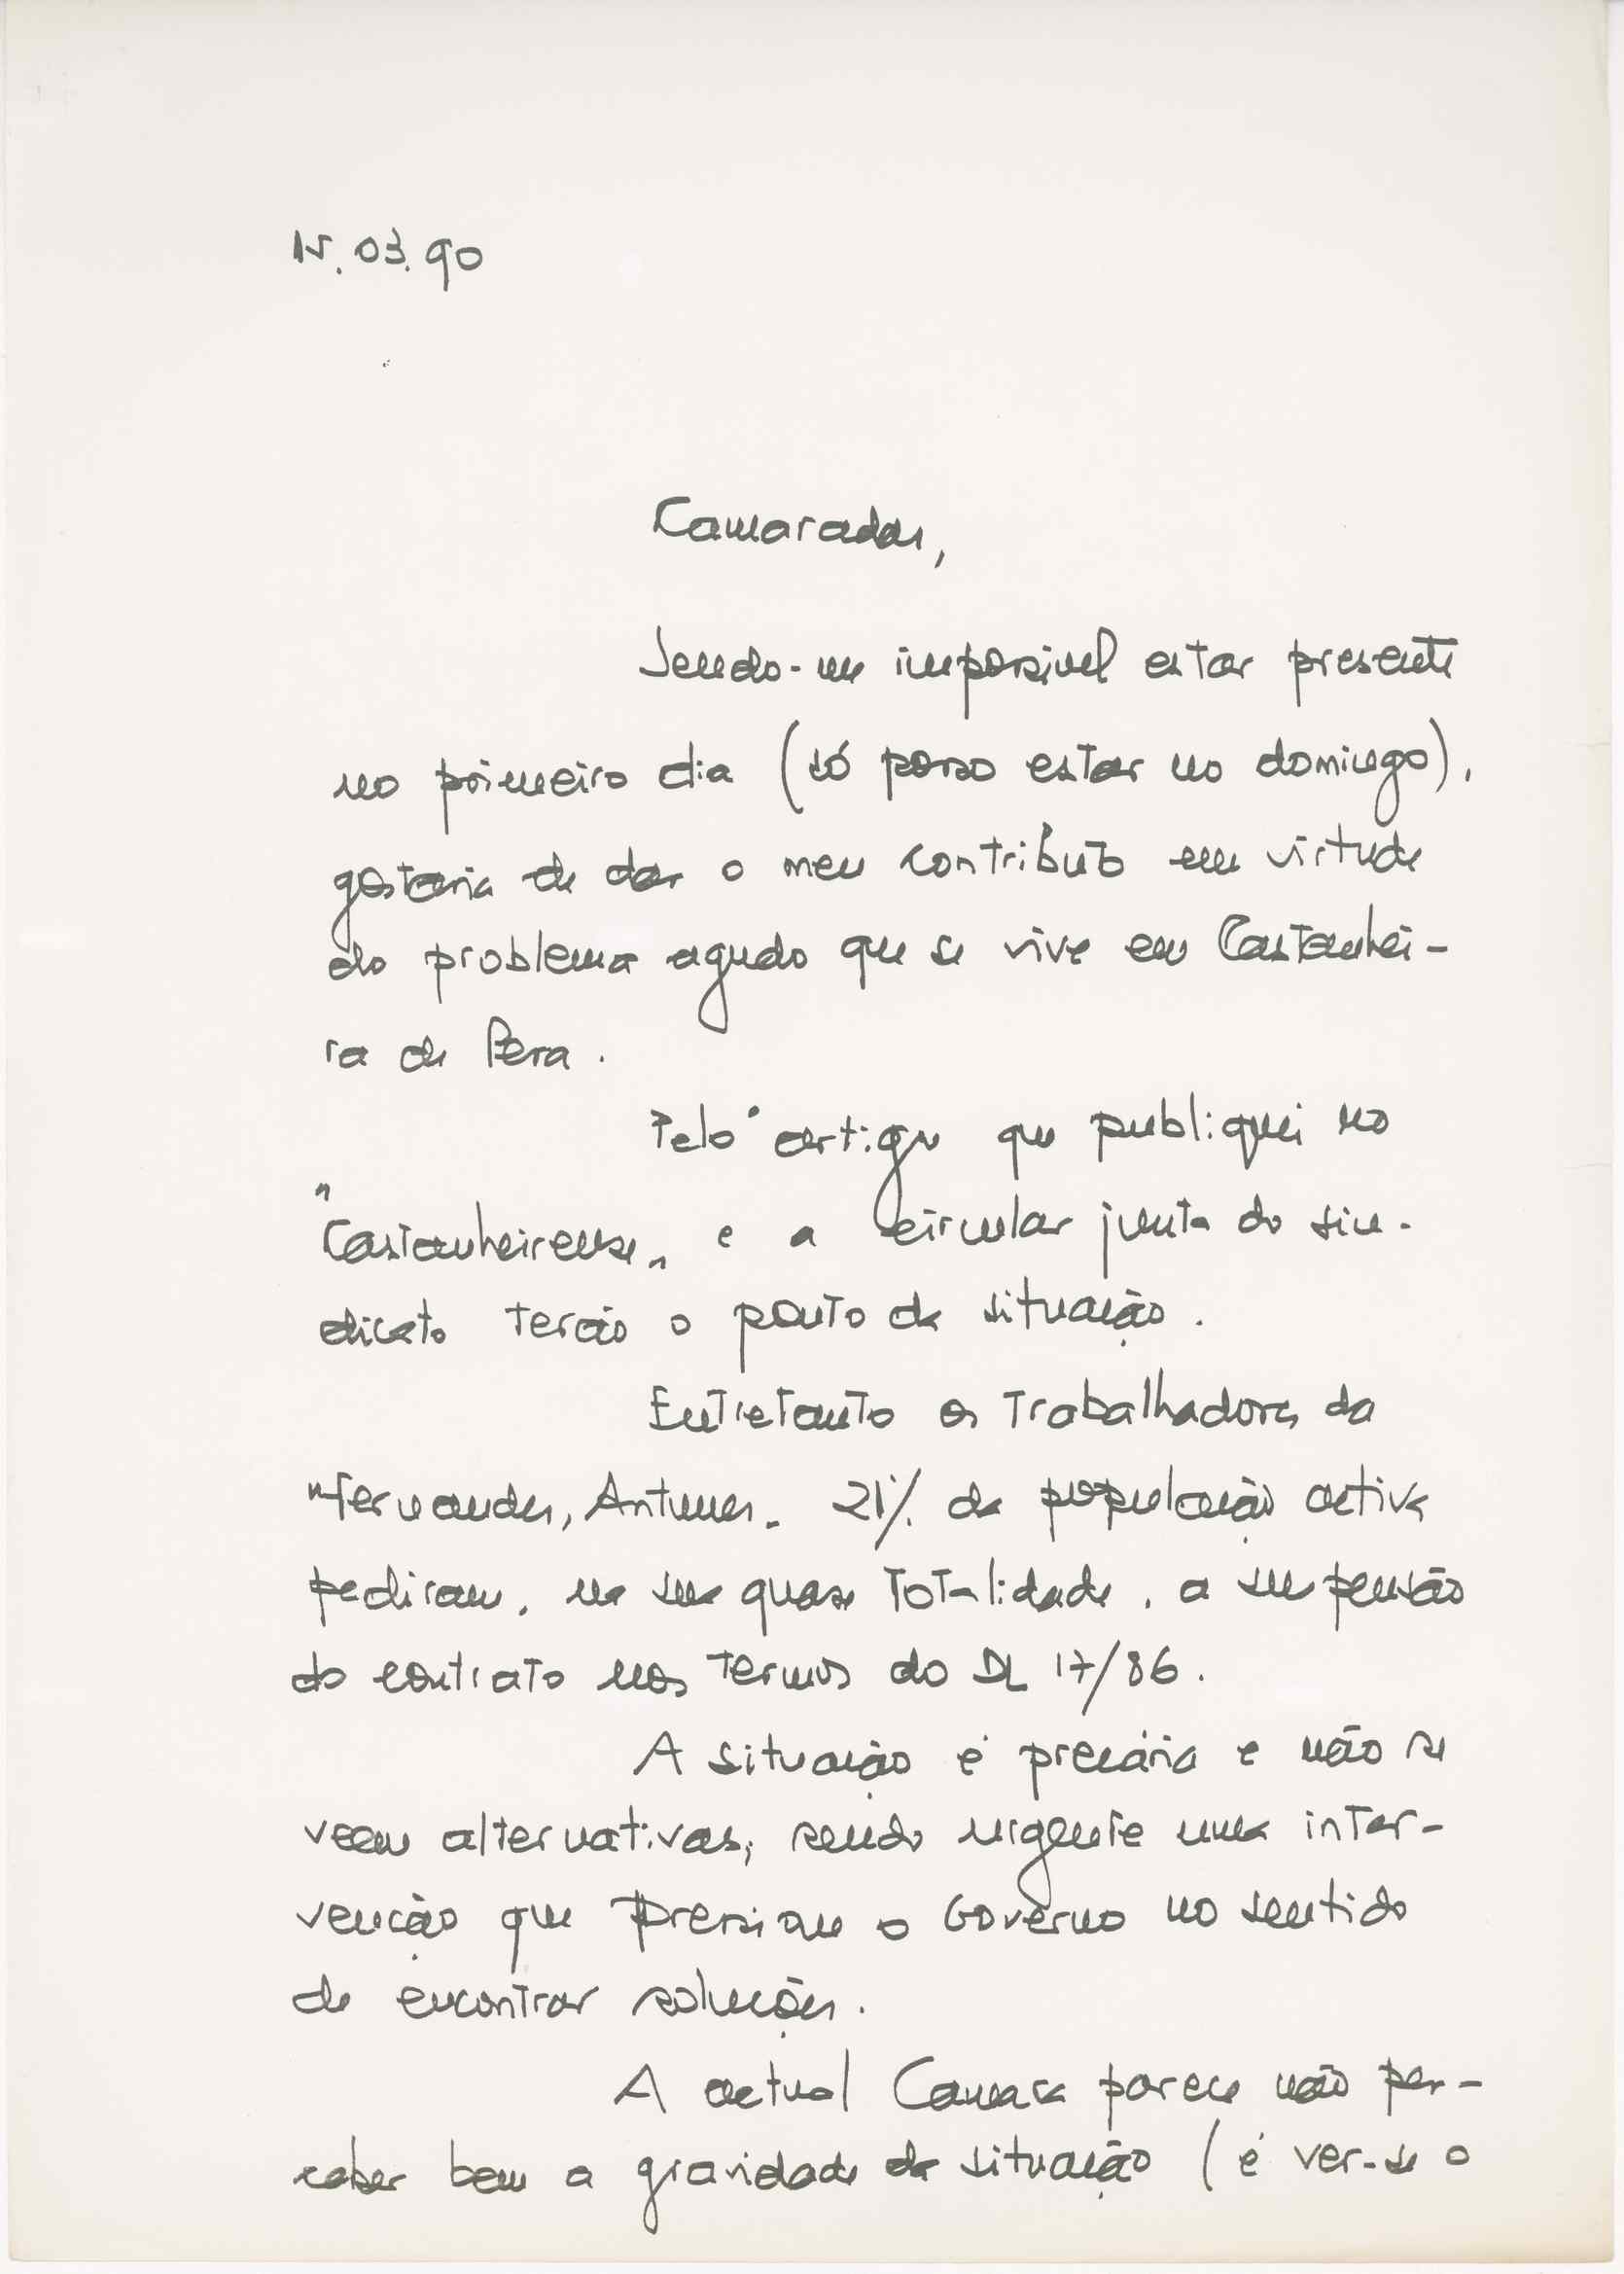 15.03.90
Camaradas,
Sendo-me impossivel estar presente
no primeiro dia (só posso estar no domingo),
gostaria de dar o meu contributo em virtude
do problema agudo que se vive em Castanhei-
ra de Pera.
Pelo artigo que publiquei no
"Castanheirense" e a circular junta do sin-
dicato terão o ponto da situação.
Entretanto os trabalhadores da
"Fernandes, Antunes" 21% da população activa
pediram, na sua quase totalidade, a suspensão
do contrato nos termos do DL 17/86.
A situação é precária e não se
veem alternativas, sendo urgente uma inter-
venção que pressione o Governo no sentido
de encontrar soluções.
A actual Camara parece não per-
ceber bem a gravidade da situação (é ver-se o